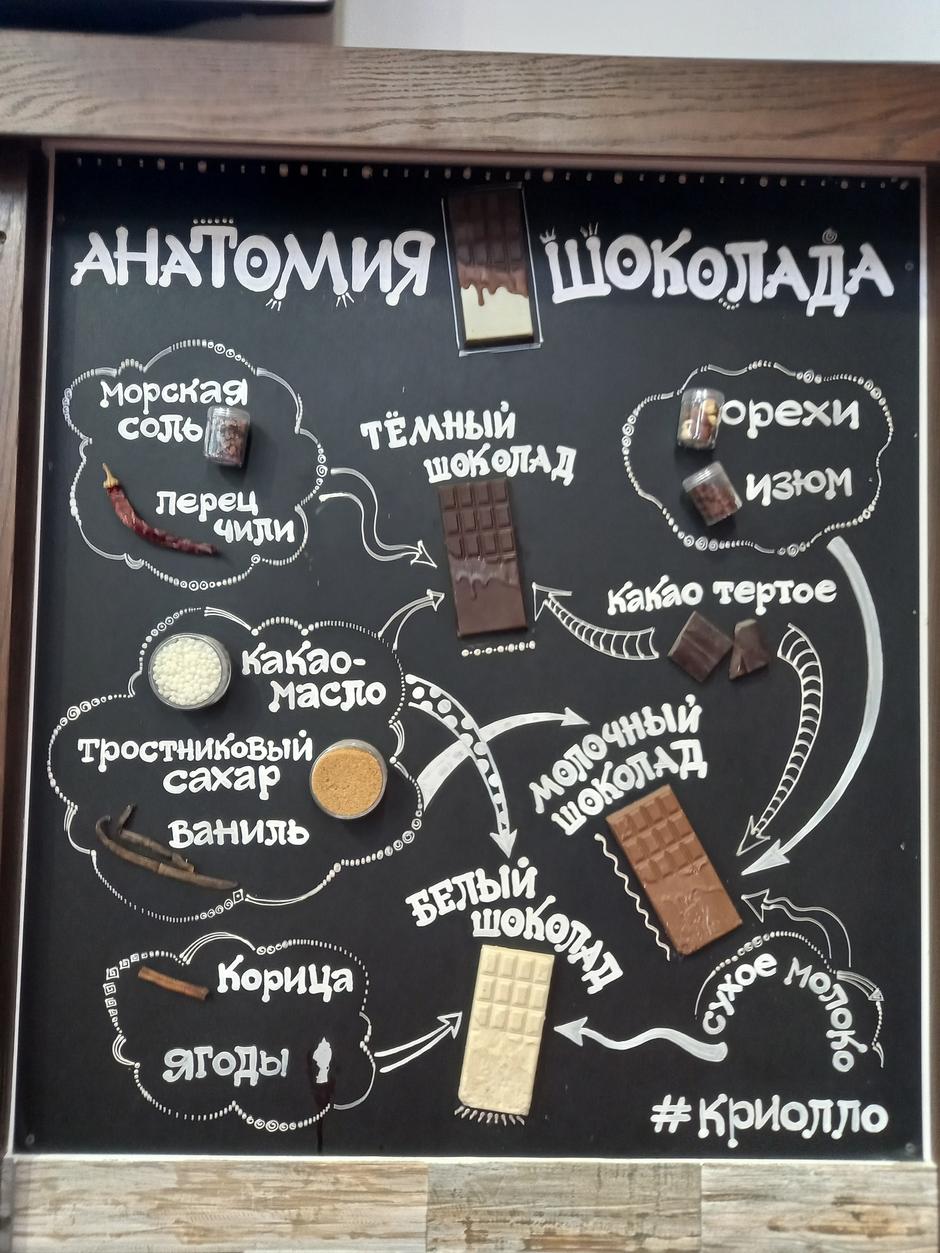 АНАТОМИЯ ШОКОЛАДА
морская
соль
перец
чили
ТЁМНЫЙ
ШОКОЛАД
орехи
изюм
какао тертое
какао-
масло
тростниковый
сахар
ваниль
МОЛОЧНЫЙ
ШОКОЛАД
БЕЛЫЙ
ШОКОЛАД
корица
ягоды
сухое молоко
#криолло